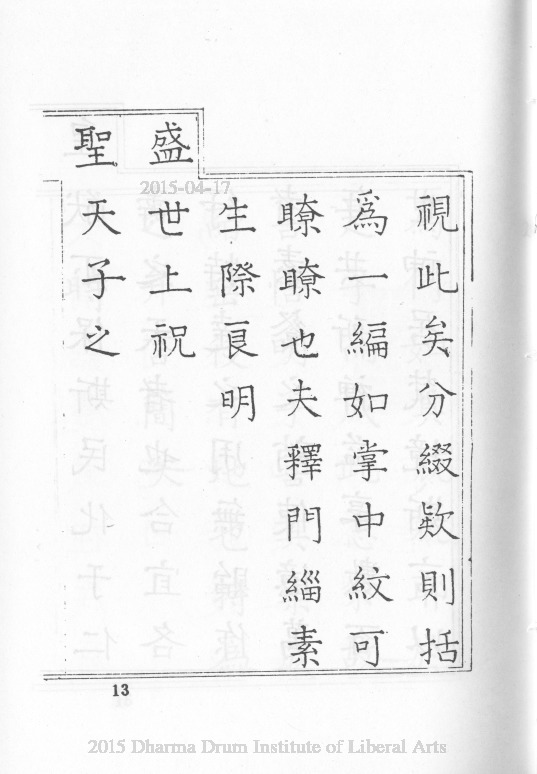 視此矣分綴欵則括
爲一編如掌中紋可
瞭瞭也夫釋門緇素
生際良明
盛世上祝
聖天子之
2015-04-17
13
2015 Dharma Drum Institute of Liberal Arts